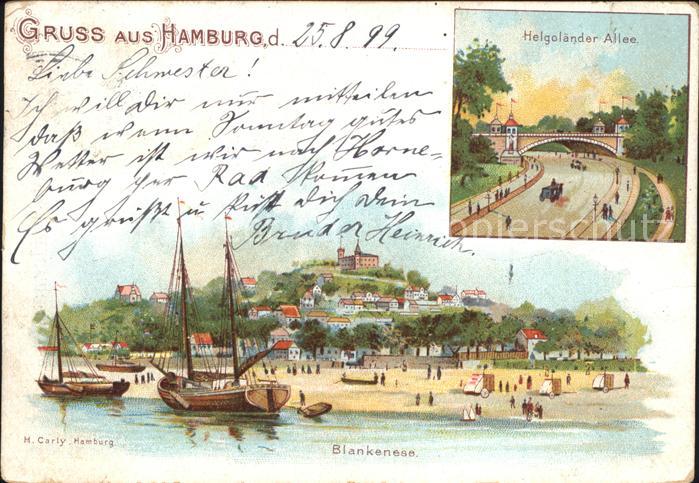 GRUSS AUS HAMBURG, d. 25.8.99.
Helgoländer Allee.
Liebe Schwester!
Ich will Dir nur mitteilen
daß wenn Sonntag gutes
Wetter ist wir nach Horne-
burg per Rad kommen
Es grüßt u. küßt dich dein
Bruder Heinrich.
H. Carly, Hamburg.
Blankenese.